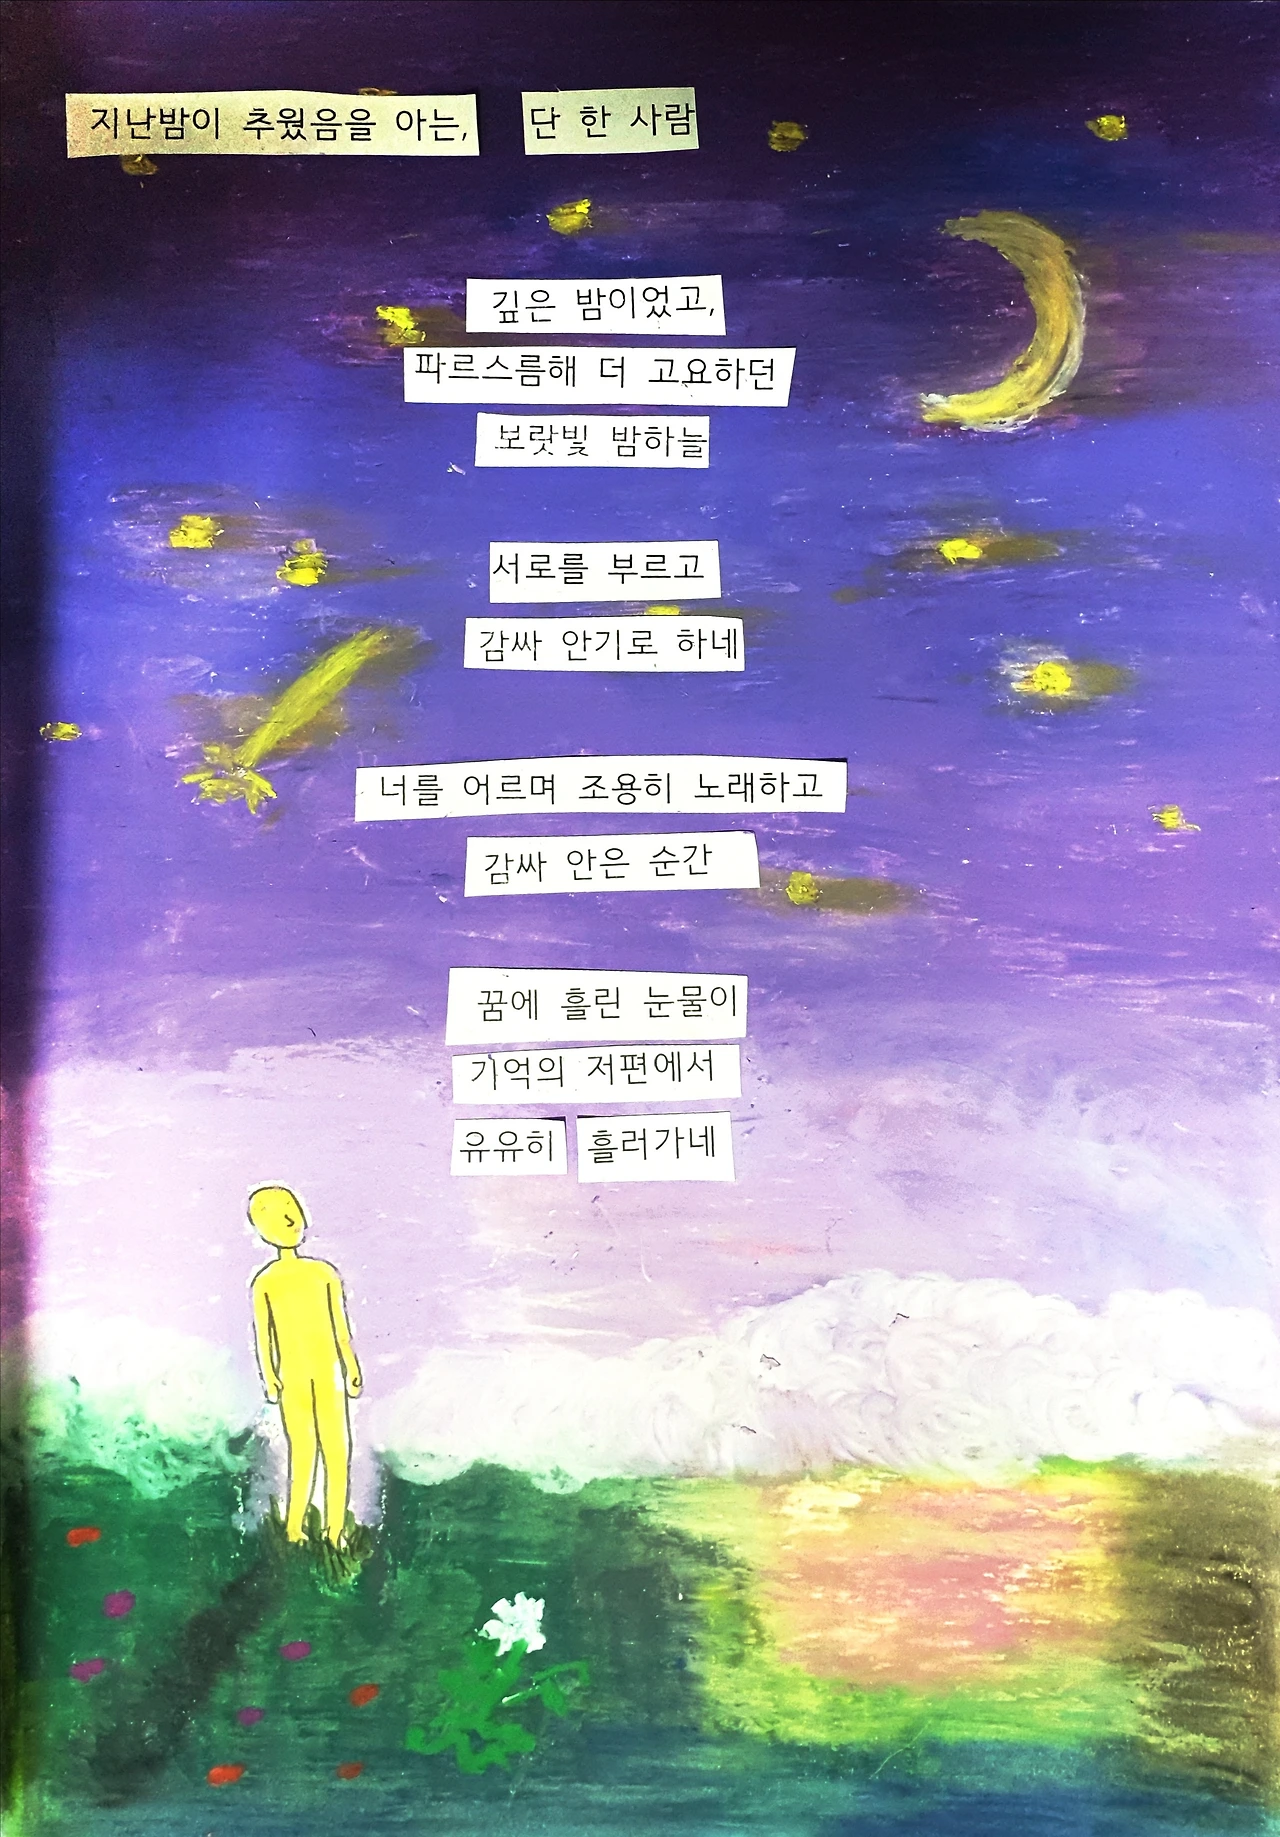 지난밤이 추웠음을 아는, 단 한 사람
깊은 밤이었고,
파르스름해 더 고요하던
보랏빛 밤하늘
서로를 부르고
감싸 안기로 하네
너를 어르며 조용히 노래하고
감싸 안은 순간
꿈에 흘린 눈물이
기억의 저편에서
유유히 흘러가네